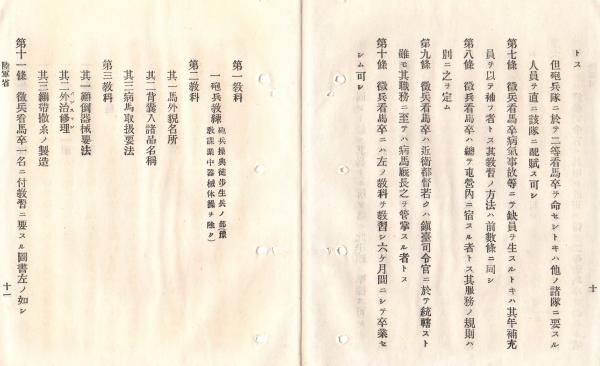 トス
但砲兵隊ニ於テ二等看馬卒ヲ命セシトキハ他ノ諸隊ニ要スル
人員ヲ直ニ該隊ニ配賦ス可シ
第七條 徵兵看馬卒病氣事故等ニテ缺員ヲ生スルトキハ其年補充
員ヲ以テ補フ者トス其敎習ノ方法ハ前數條ニ同シ
第八條 徵兵看馬卒ハ總テ屯營內ニ宿スル者トス其服務ノ規則ハ
別ニ之ヲ定ム
第九條 徵兵看馬卒ハ近衛都督若クハ鎭臺司令官ニ於テ統轄スト
雖モ其職務ニ至テハ病馬廐長之ヲ管掌スル者トス
第十條 徵兵看馬卒ニハ左ノ敎科ヲ敎習シ六ケ月間ニシテ卒業セ
シム可シ
十
第一敎科
一砲兵敎練 砲兵操典徒步生兵ノ部
敎課業中器械体操ヲ除ク
第二敎科
其一馬外貌名所
其二背囊入諸品名稱
其三病馬取扱要法
第三敎科
其一繃創器械要法
其二外治修理
其三繃帶撒糸ノ製造
第十一條 徵兵看馬卒一名ニ付敎習ニ要スル圖書左ノ如シ
陸軍省
十一